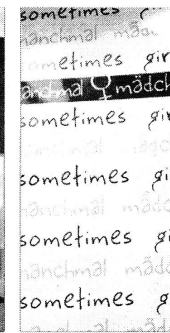 sometimes
manchmal mäd
sometimes gir
manchmal mädch
sometimes gir
sometimes gi
manchmal mäd
sometimes gi
manchmal mädc
sometimes g